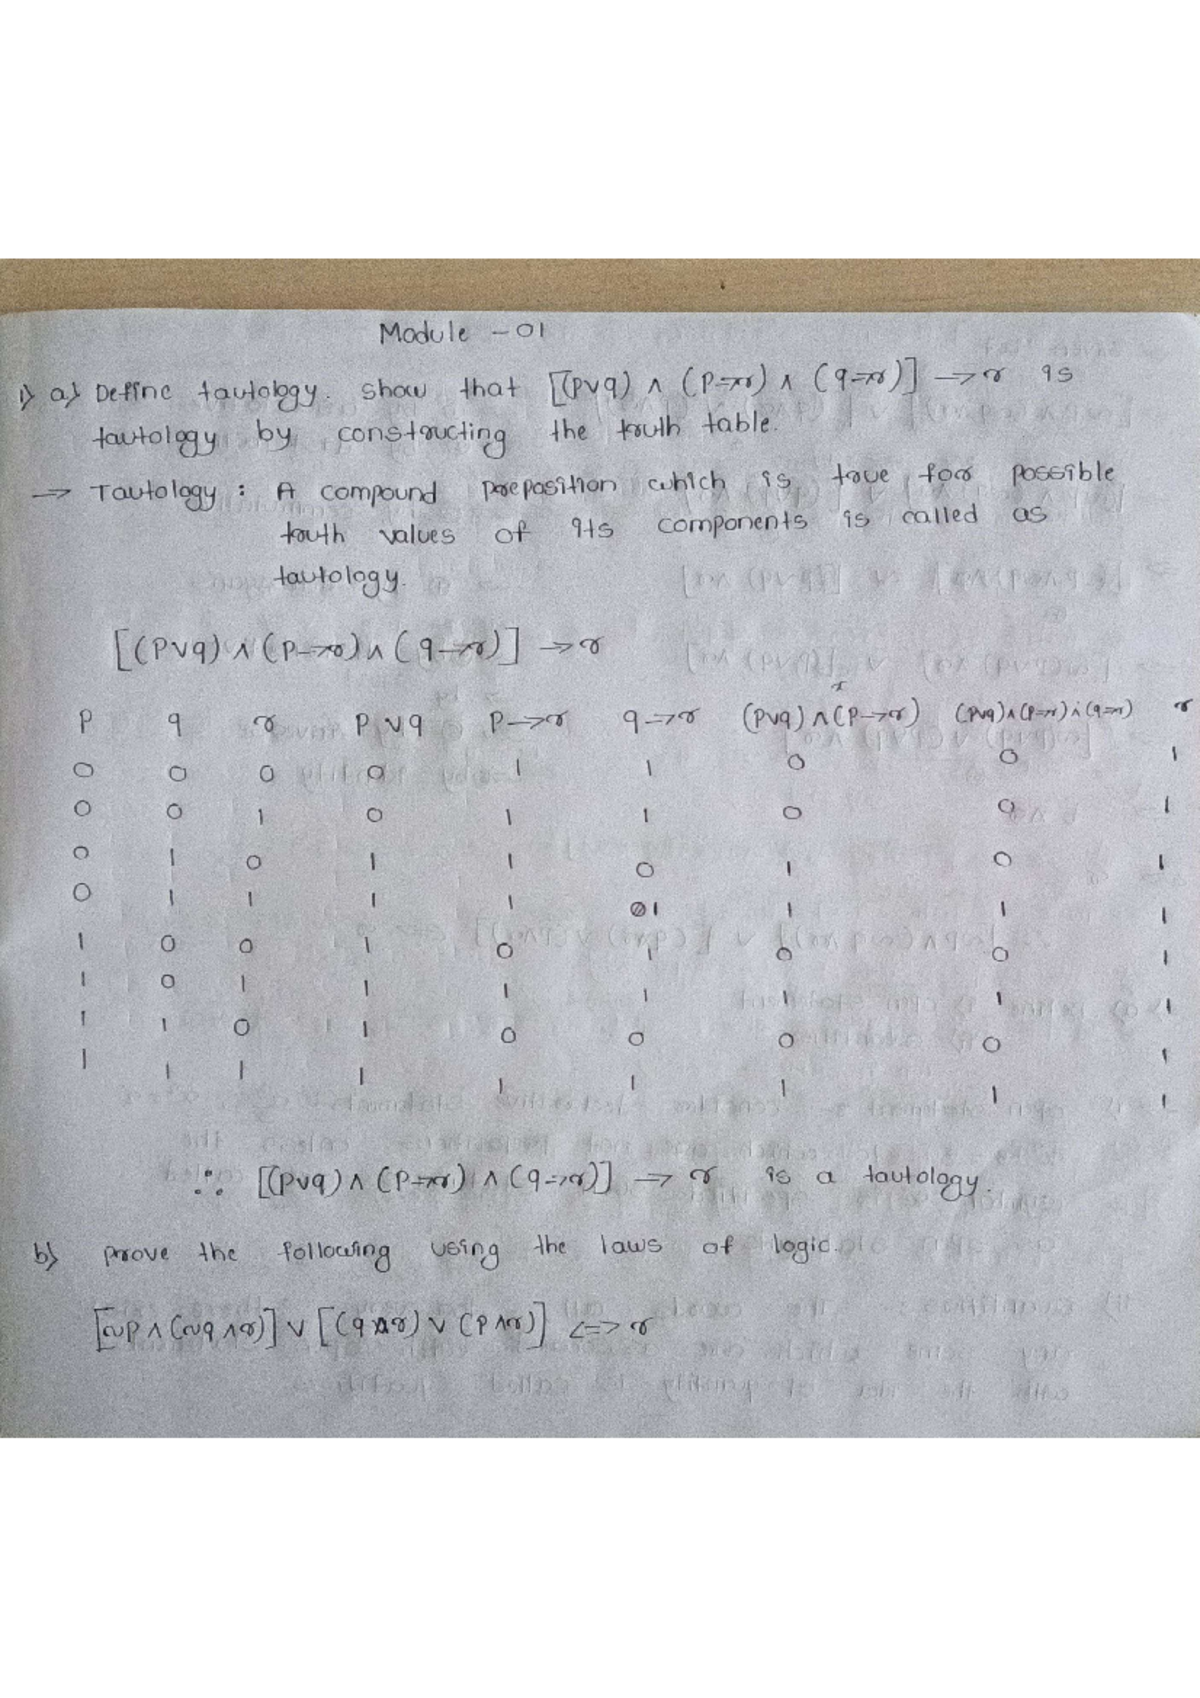 Module - 01
1) a) Define tautology. show that [(p∨q) ∧ (p→r) ∧ (q→r)] → r is
tautology by constructing the truth table.
→ Tautology : A compound preposition which is true for possible
truth values of its components is called as
tautology.
[(p∨q) ∧ (p→r) ∧ (q→r)] → r
p q r p∨q p→r q→r (p∨q)∧(p→r) (p∨q)∧(p→r)∧(q→r) r
0 0 0 0 1 1 0 0 1
0 0 1 0 1 1 0 0 1
0 1 0 1 1 0 1 0 1
0 1 1 1 1 1 1 1 1
1 0 0 1 0 1 0 0 1
1 0 1 1 1 1 1 1 1
1 1 0 1 0 0 0 0 1
1 1 1 1 1 1 1 1 1
∴ [(p∨q) ∧ (p→r) ∧ (q→r)] → r is a tautology.
b) prove the following using the laws of logic.
[~p ∧ (~q ∧ r)] ∨ [(q ∧ r) ∨ (p ∧ r)] <=> r